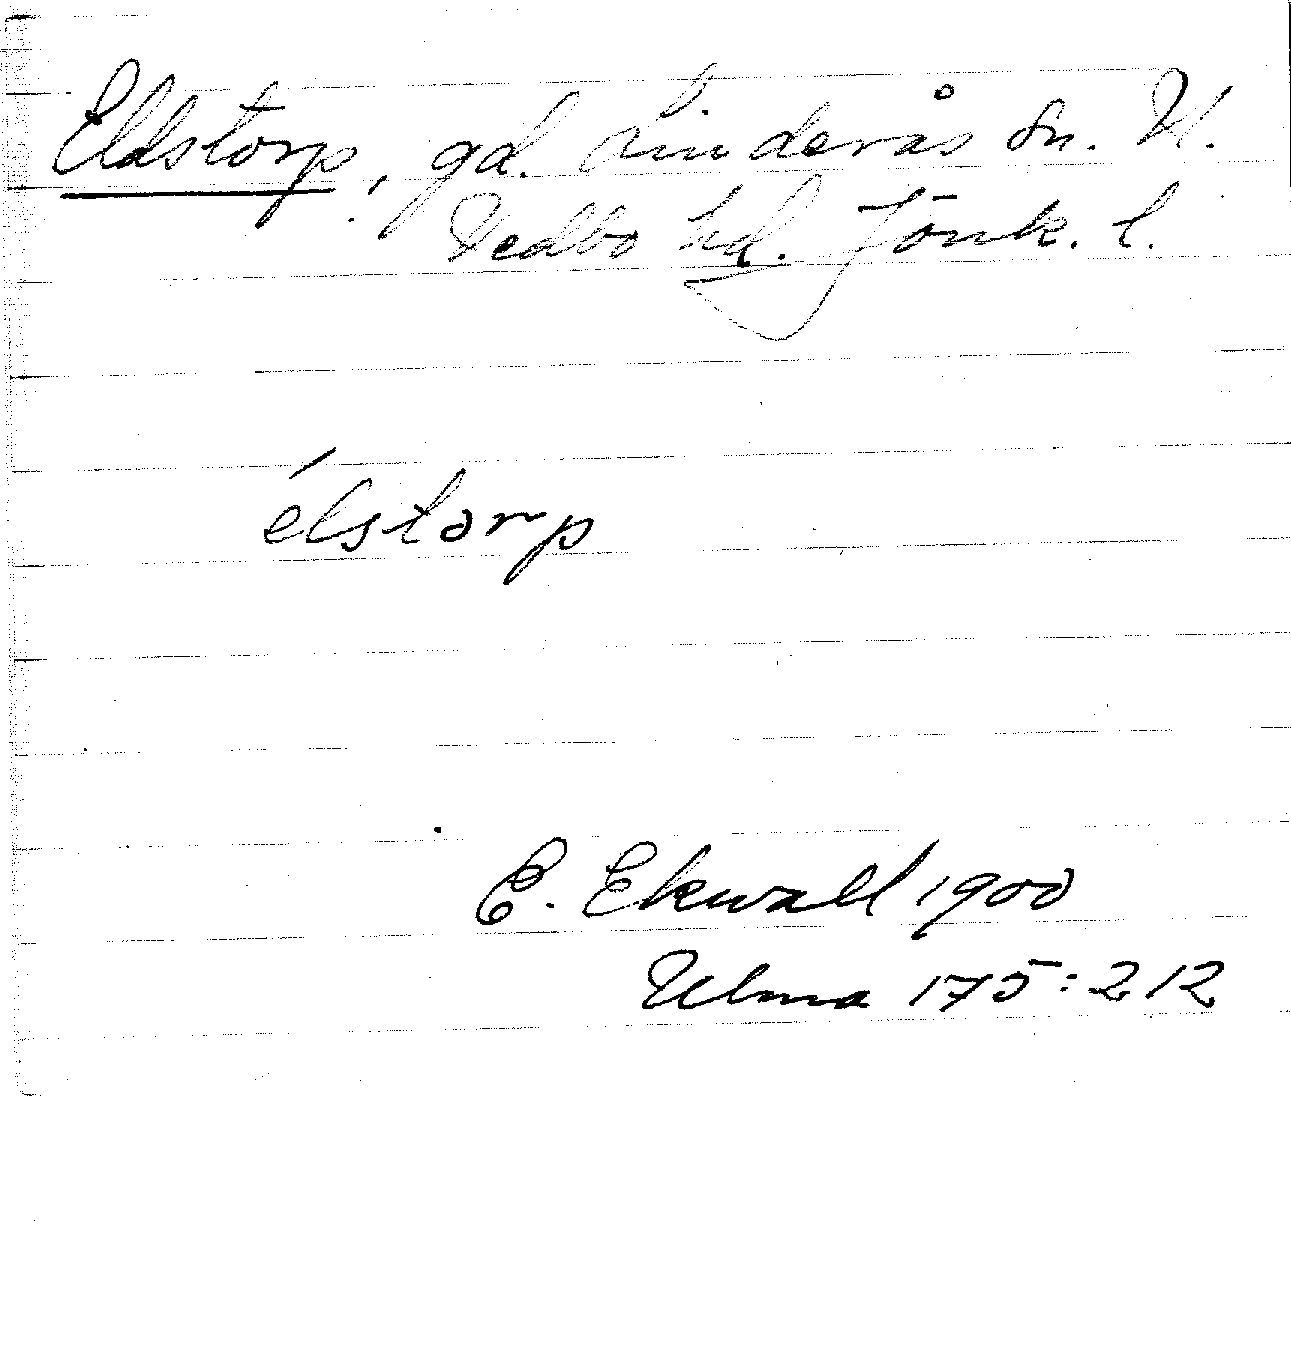 Eldstorp, gd. Linderås sn. N.
Vedbo hd. Jönk. l.
élstɔrp
E. Ekwall 1900
Ulma 175:212